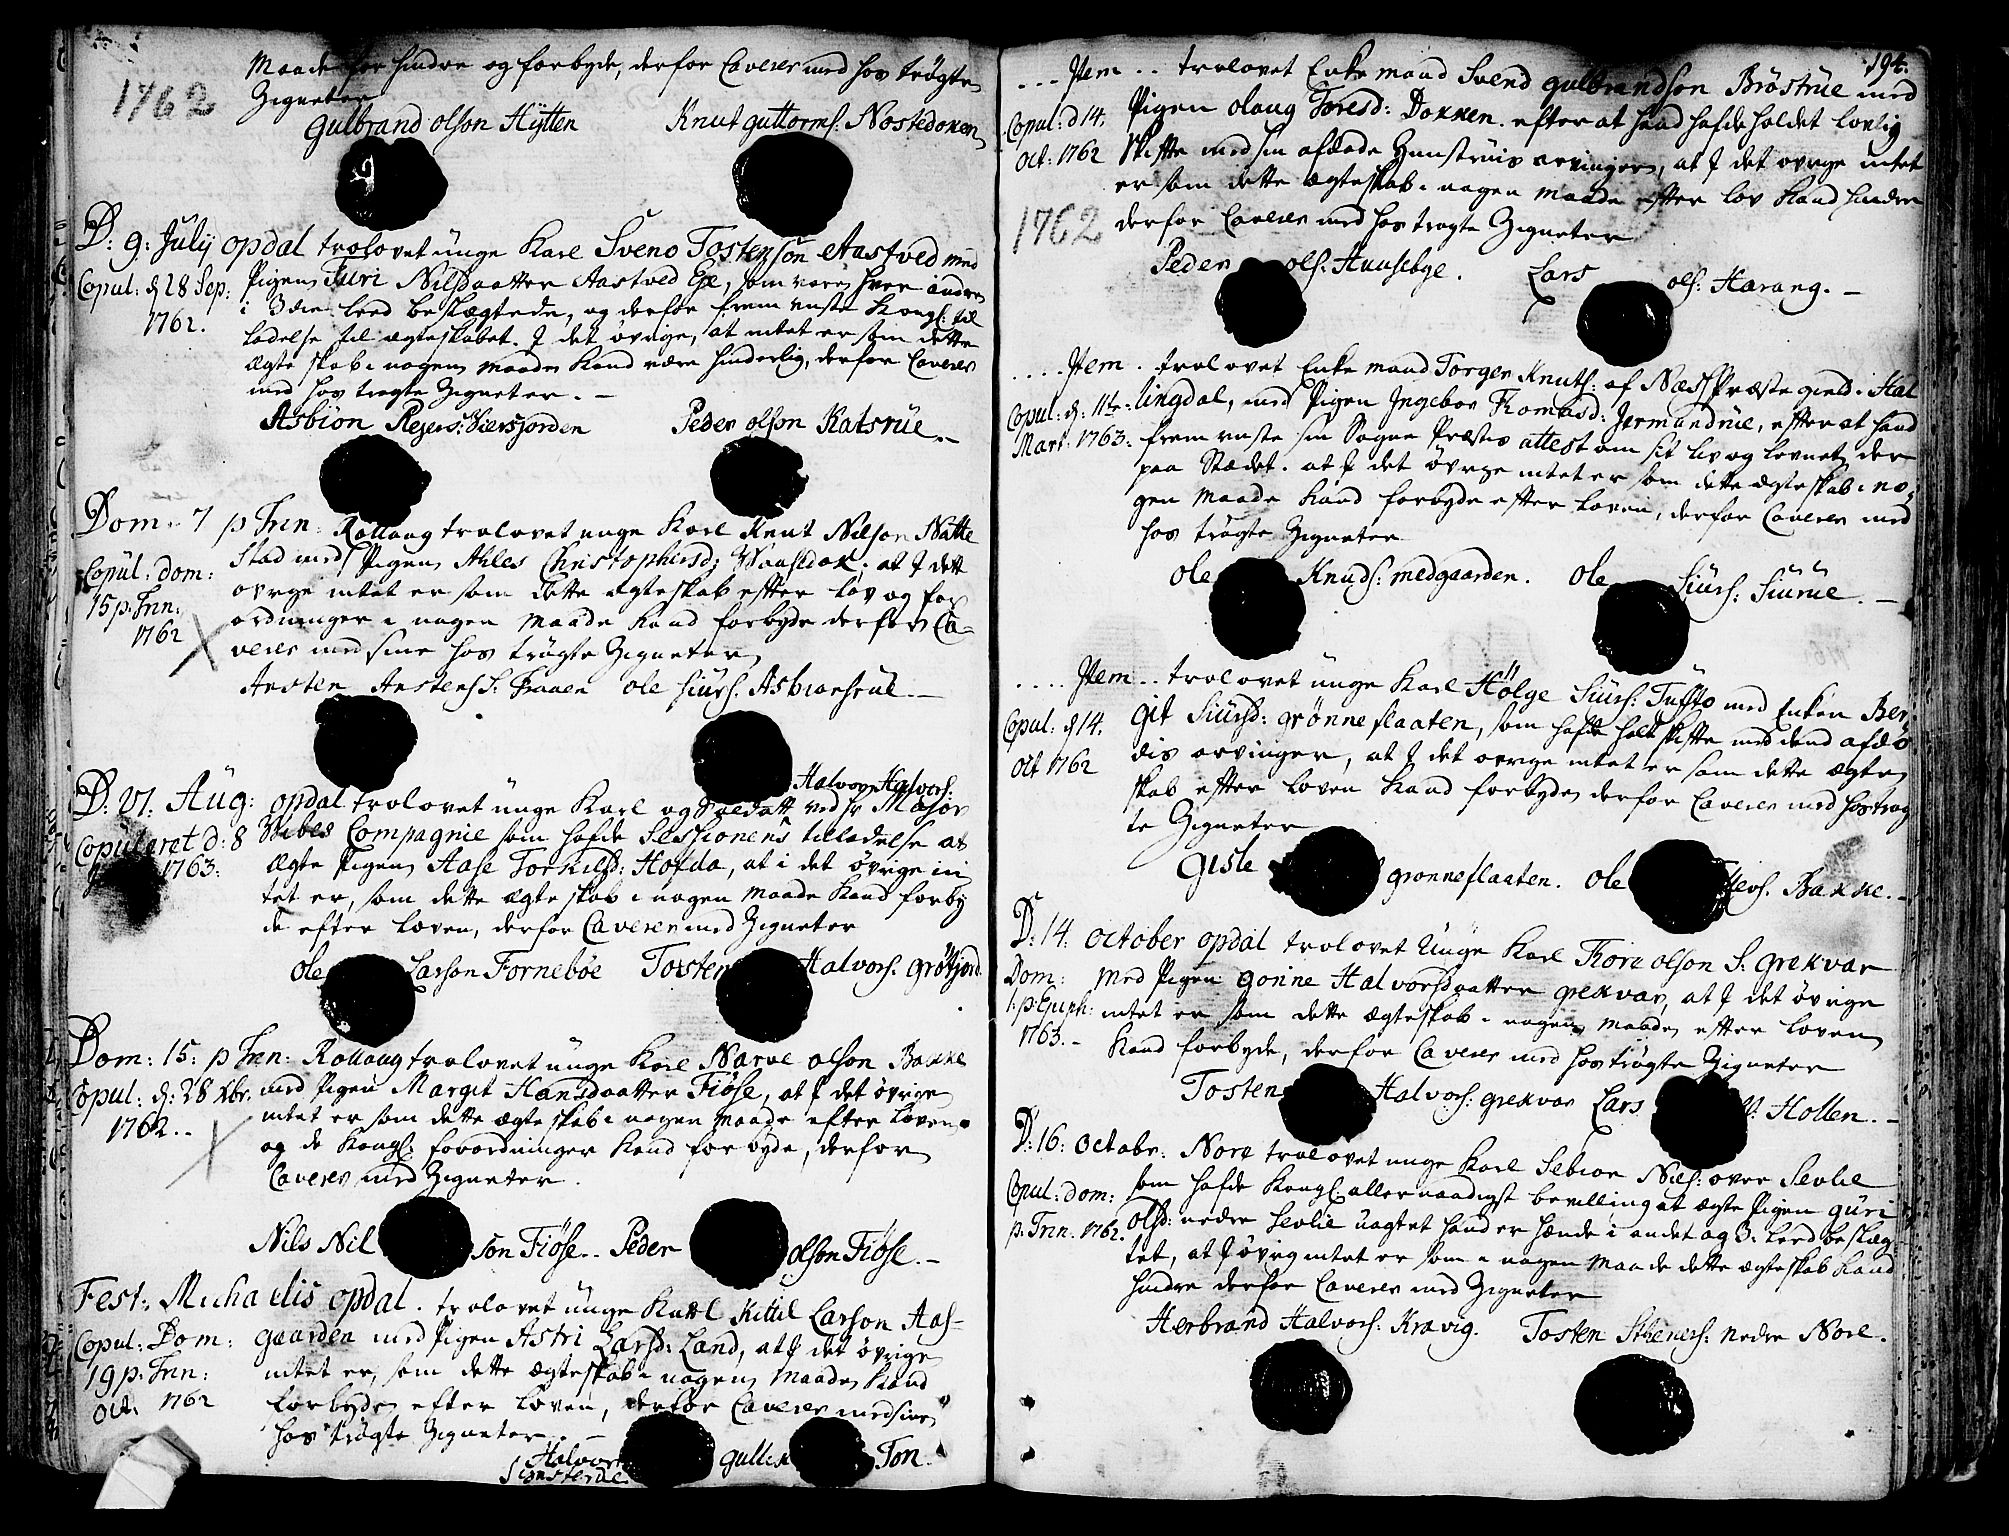 1762
Maade kand hindre og forbyde, derfor Caverer med hos trögte
Zigneter
Gulbrand olson Hÿtten Knut guttorms: Nostedokken
D: 9: Julÿ opdal trolovet unge Karl Svend Tostenson Aastved med
Copul: d: 28 Sep: Pigen Turi Nilsdaatter Aastved Eÿe, som vare hver andre
1762. i 3die Leed beslægtede, og derfor frem viste Kongl: til
ladelse til ægteskabet. I det øvrige, at intet er som dette
ægteskab i nogen maade Kand være hinderlig, derfor Caverer
med hos trögte Zigneter. –
Asbiön Rejers: Siersjorden Peder olson Ratsrüe. –
Dom: 7 p Trin: Rollaug trolovet unge Karl Knut Nilson Natte
Copul: dom: stad med Pigen Ahles Christophersd: at I dette
15 p. Trin: øvrge intet er som dette ægteskab efter lov og for
1762 ordninger i nogen maade Kand forbyde derfor Ca-
verer med sine hos trögte Zigneter
Ansten Anstens S: Fraaen ole siurs. Asbiønsrue. –
Halvor Halvors:
D: 27. Aug: opdal trolovet unge Karl og Soldatt ved hr Major
Copuleret d: 8 Compagnie som hafde Sessionens tilladelse at
1763: ægte Pigen Aase Torkilsd: Hofda, at i det øvrige in
tet er, som dette ægteskab i nogen maade Kand forby
de efter loven, derfor Caverer med Zigneter
ole Larson Forneböe Tosten Halvors: grötjord
Dom: 15: p Trin: Rollaug trolovet unge Karl Narve olson Bakke
Copul: d: 28 Xbr. med Pigen Margit Hansdaatter Fiöse, at I det øvrige
1762.. intet er som dette ægteskab i nogen maade efter loven
og de Kongl: forordninger Kand forbyde, derfor
Caverer med Zigneter.
Nils Nil son Fiöse.. Peder olson Fiöse. –
Fest: Michaelis opdal. trolovet unge Karl Kittil Larson Aas-
Copul: Dom: gaarden med Pigen Astri Larsd: Land, at I det øvrige
19 p. Trin: intet er, som dette ægteskab i nogen maade Kand
oct: 1762 forbyde efter loven, derfor Caverer med sine
hos trögte Zigneter. –
Halvor gulli Ton.
194.
... Item .. trolovet Enkemand Svend gulbrandson Bröstrüe med
Copul: d 14. Pigen olaug Toresd: Dokken. efter at hand hafde holdet lovlig
oct: 1762 Skifte med sin afdøde Hustruis arvinger, at I det øvrge intet
er som dette ægteskab i nogen maade efter lov Kand hindre
1762 derfor Caverer med hos trögte Zigneter
Peder ols: Huusebye. Lars ols: Harang. –
.... Item . trolovet Enkemand Torger Knuts: af Næss Præstegield i Hal
Copul: d: 11te lingdal, med Pigen Ingebor Thomasd: Jermundrue, efter at hand
Mart: 1763. fremviste sin Sogne Præstes attest om sit liv og levnet der
paa Stædet. at I det øvrge intet er som dette ægteskab i no-
gen maade Kand forbyde efter loven, derfor Caverer med
hos trögte Zigneter
ole Knuds: medgaarden. ole Siurs: Siurue. –
.... Item .. trolovet unge Karl Hölge Siurs: Tufto med Enken Ber
Copul: d 14. git Siursd: grönneflaaten, som hafde holt skifte med dend afdø
oct 1762 dis arvinger, at I det øvrge intet er som dette ægte
skab efter loven Kand forbyde derfor Caverer med hoströg
te Zigneter
Gisle grønneflaaten. ole Bakke. –
D: 14: october opdal trolovet Unge Karl Tore olson S: grekvar
Dom: med Pigen gonne Halvorsdaatter grekvar, at I det øvrige
1. p Epiph: intet er som dette ægteskab i nogen maade efter loven
1763. – Kand forbyde, derfor Caverer med hoströgte Zigneter
Tosten Halvors: grekvar Lars Hollen. –
D: 16: octobr: Nore trolovet unge Karl Sebiør Niels: over Sevlie
Copul: dom: som hafde Kongl: allernaadigst bevilling at ægte Pigen guri
p. Trin. 1762. olsd: nedre Sevlie uagtet hand er hende i andet og 3. leed beslæg
tet, at I øvrig intet er som i nogen maade dette ægteskab Kand
hindre derfor Caverer med Zigneter
Herbrand Halvors: Kravig. Tosten Stheners: nedre Nore.